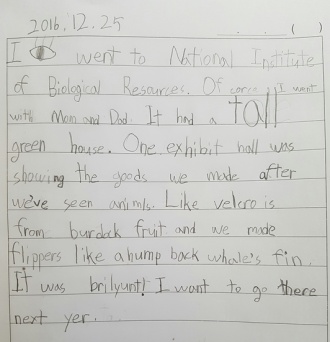 2016. 12. 25 ( )
I went to National Institute
of Biological Resources. Of corse I went
with Mom and Dad. It had a tall
green house. One exhibit hall was
showing the goods we made after
we've seen animls. Like velcro is
from burdock fruit and we made
flippers like a hump back whale's fin.
It was brilyunt! I want to go there
next yer.